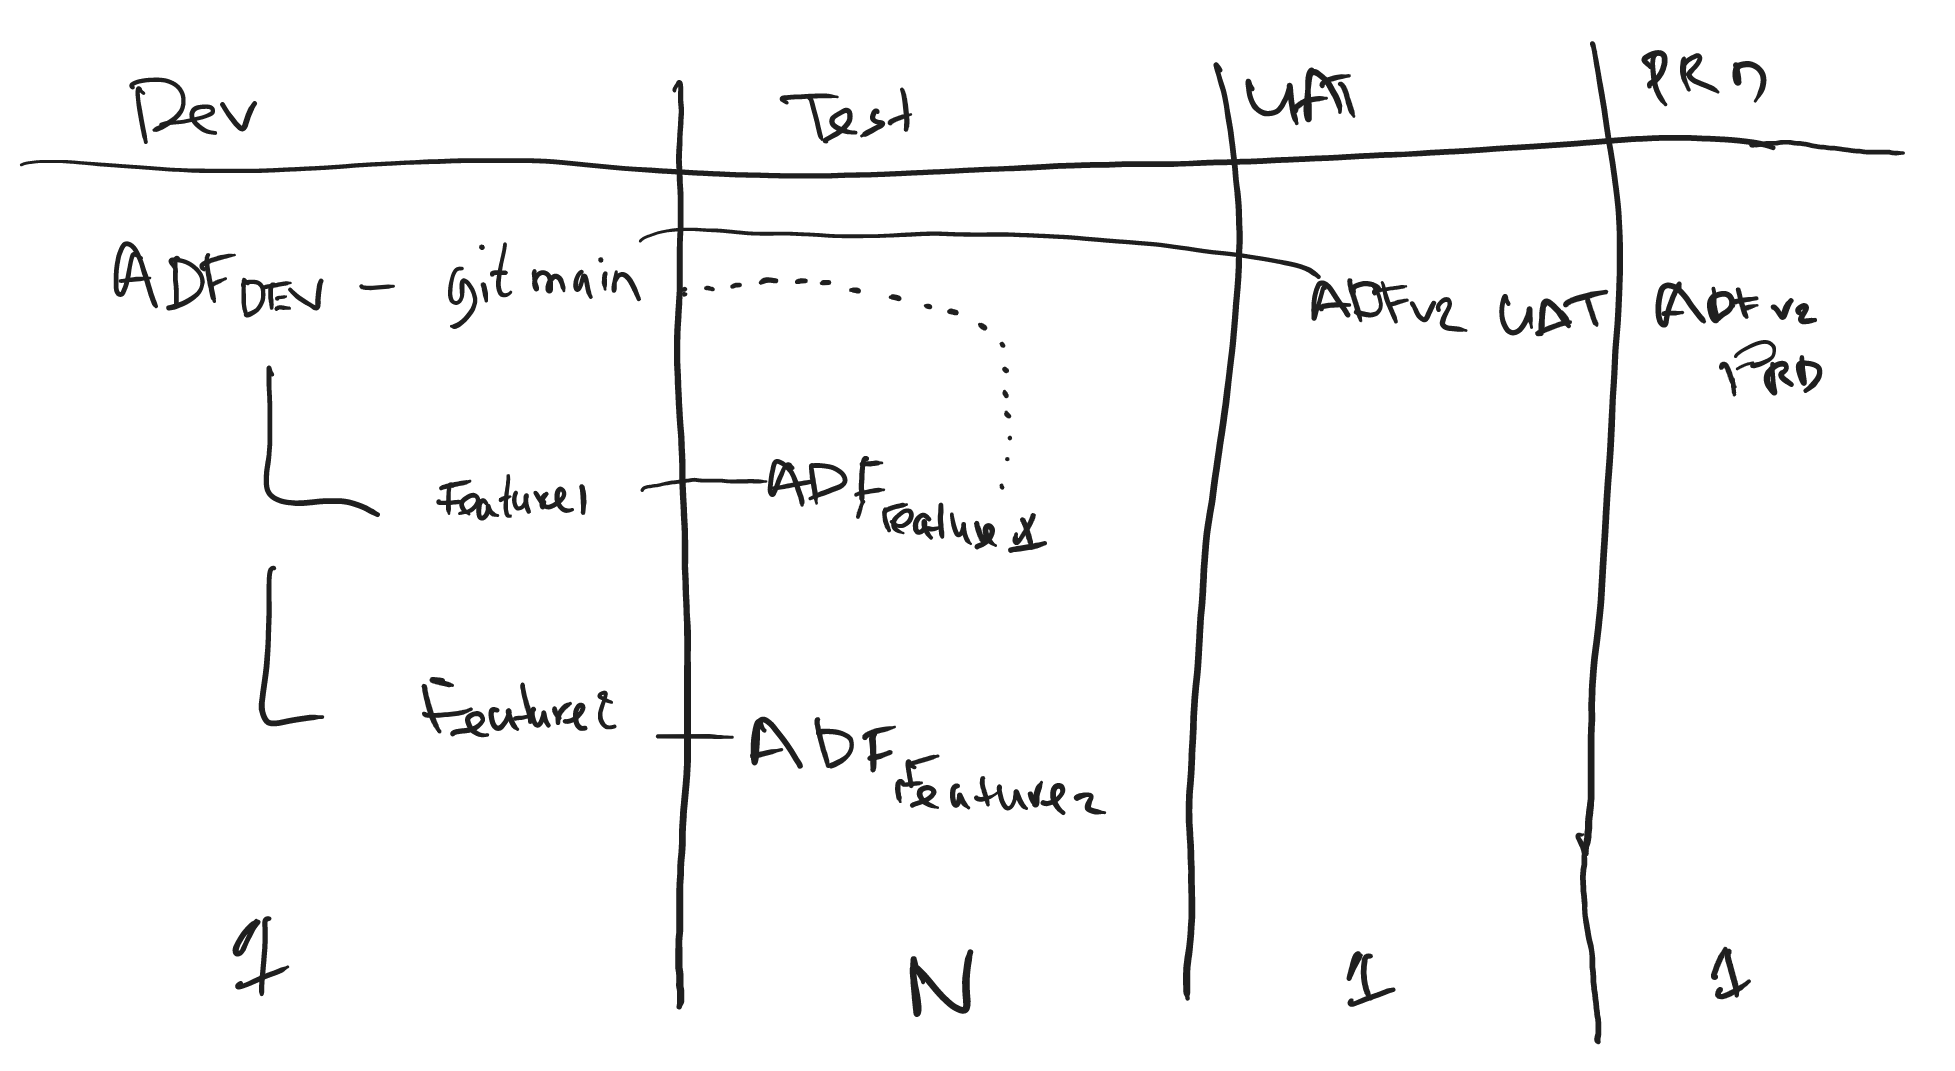 Dev Test UAT PRD
ADF DEV - git main ADFv2 UAT ADFv2
PRD
Feature1 ADF Feature 1
Feature2 ADF Feature2
1 N 1 1